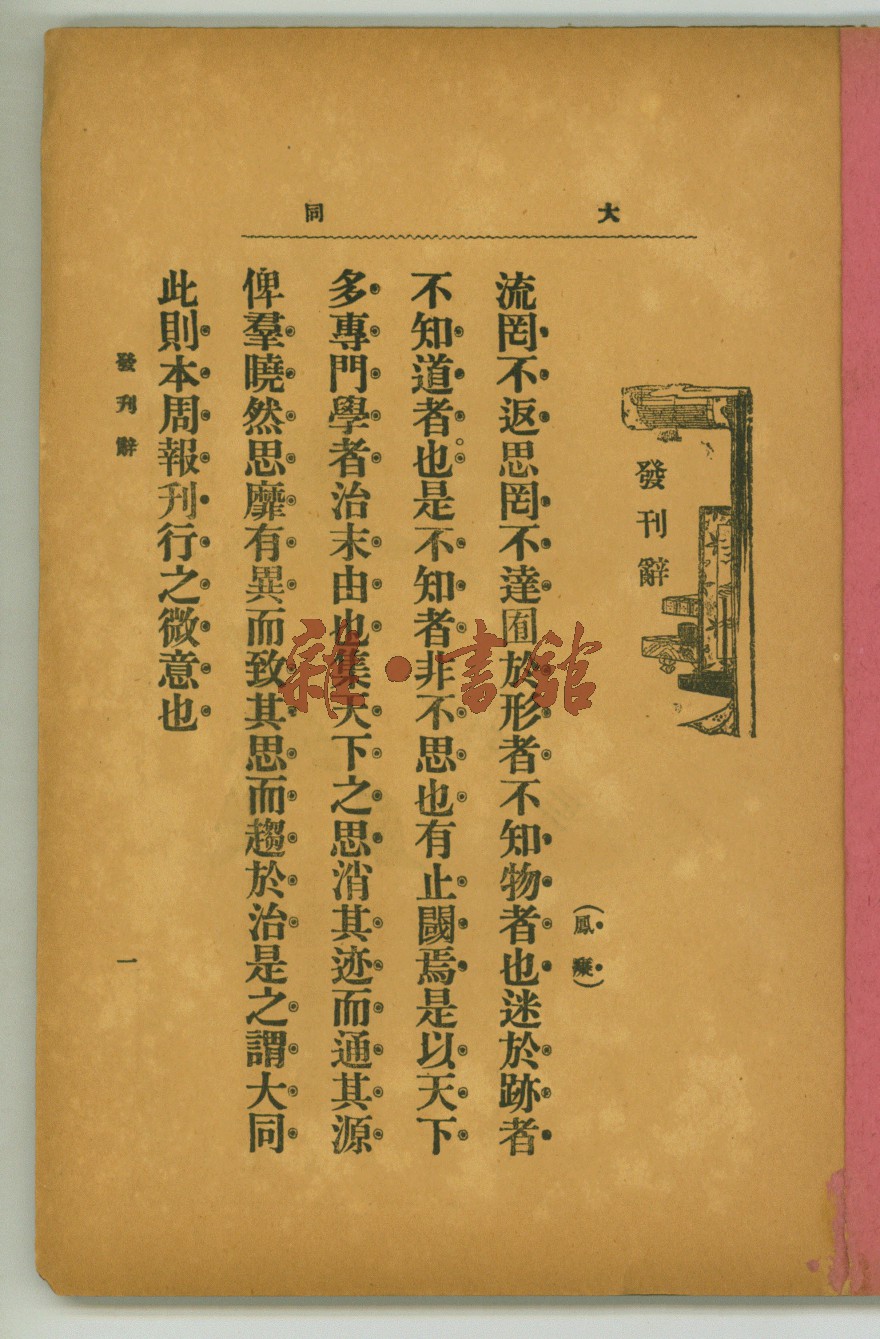 大同
發刊辭
(鳳藂)
流罔不返思罔不達囿於形者不知物者也迷於跡者
不知道者也是不知者非不思也有止閾焉是以天下
多專門學者治末由也集天下之思消其迹而通其源
俾羣曉然思靡有異而致其思而趨於治是之謂大同
此則本周報刊行之微意也
發刊辭
一
雜·書館